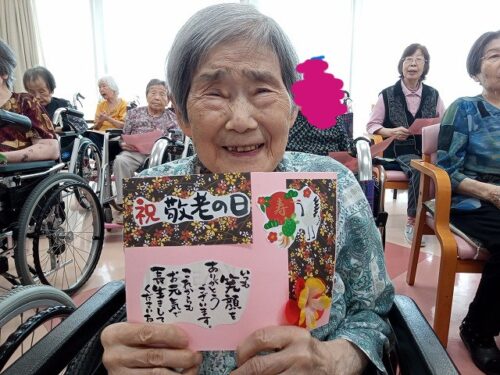 祝 敬老の日
寿
いつも
笑顔を
ありがとう
ございます
これからも
お元気で
長生きして
くださいね